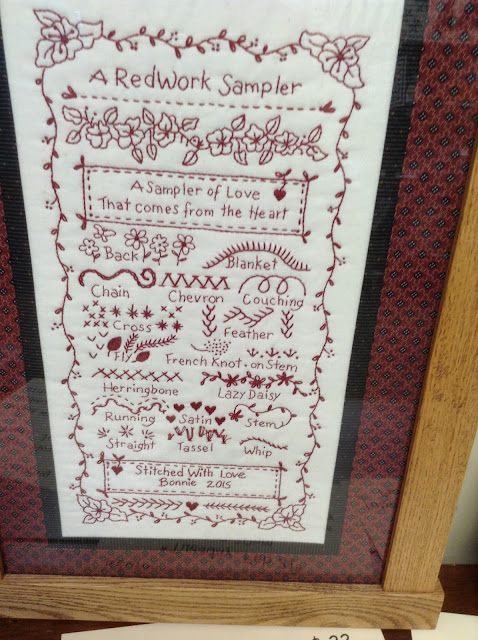 A RedWork Sampler
A Sampler of Love
That comes from the Heart
Back
Blanket
Chain
Chevron
Couching
Cross
Feather
Fly
French Knot • on Stem
Herringbone
Lazy Daisy
Running
Satin
Stem
Straight
Tassel
Whip
Stitched With Love
Bonnie 2015